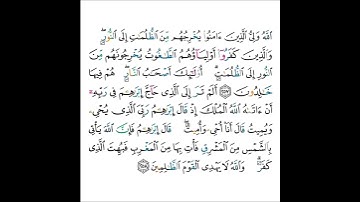 ٱللَّهُ وَلِىُّ ٱلَّذِينَ ءَامَنُوا۟ يُخْرِجُهُم مِّنَ ٱلظُّلُمَٰتِ إِلَى ٱلنُّورِ ۖ
وَٱلَّذِينَ كَفَرُوٓا۟ أَوْلِيَآؤُهُمُ ٱلطَّٰغُوتُ يُخْرِجُونَهُم مِّنَ
ٱلنُّورِ إِلَى ٱلظُّلُمَٰتِ ۗ أُو۟لَٰٓئِكَ أَصْحَٰبُ ٱلنَّارِ ۖ هُمْ فِيهَا
خَٰلِدُونَ ٢٥٧ أَلَمْ تَرَ إِلَى ٱلَّذِى حَآجَّ إِبْرَٰهِۦمَ فِى رَبِّهِۦٓ
أَنْ ءَاتَىٰهُ ٱللَّهُ ٱلْمُلْكَ إِذْ قَالَ إِبْرَٰهِۦمُ رَبِّىَ ٱلَّذِى يُحْىِۦ
وَيُمِيتُ قَالَ أَنَا۠ أُحْىِۦ وَأُمِيتُ ۖ قَالَ إِبْرَٰهِۦمُ فَإِنَّ ٱللَّهَ يَأْتِى
بِٱلشَّمْسِ مِنَ ٱلْمَشْرِقِ فَأْتِ بِهَا مِنَ ٱلْمَغْرِبِ فَبُهِتَ ٱلَّذِى
كَفَرَ ۗ وَٱللَّهُ لَا يَهْدِى ٱلْقَوْمَ ٱلظَّٰلِمِينَ ٢٥٨